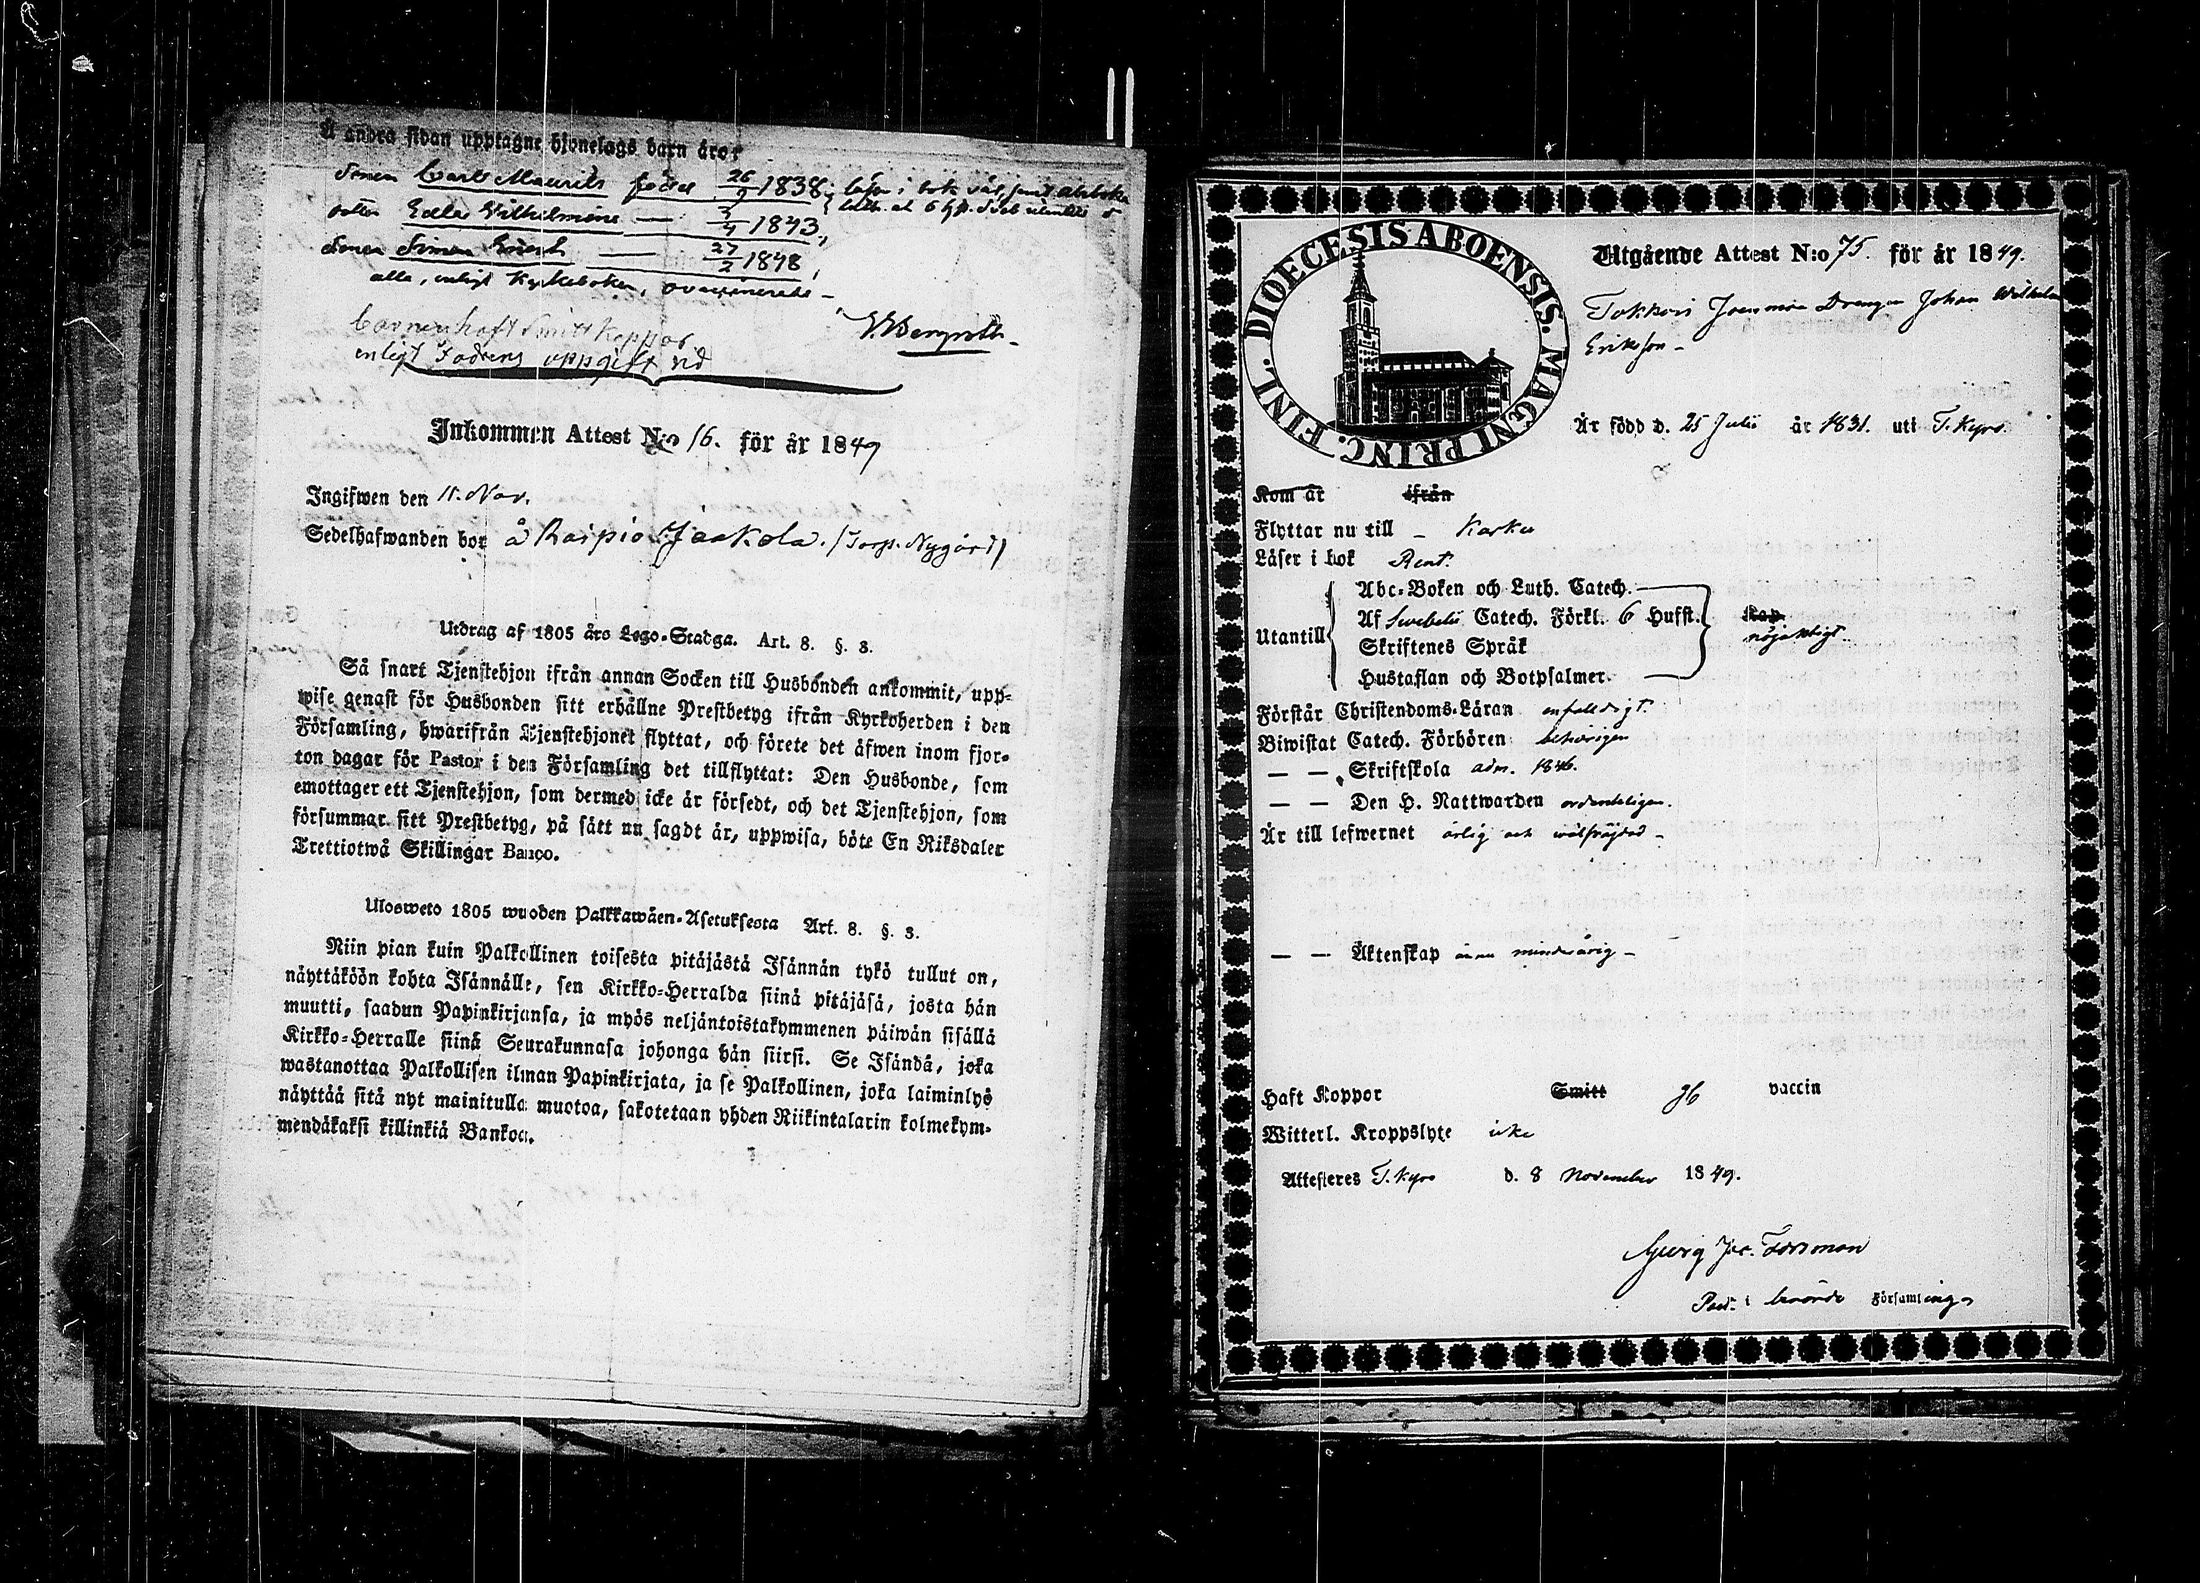 Å andra sidan upptagne hjonelags barn äro:
Sonen Carl Maurits född 26/9 1838; läser i bok väl, samt abcboken
dotter Edla Wilhelmina — 3/4 1843,
Sonen Simon Enok — 27/2 1848,
alla, enligt Kyrkoboken, ovaccinerade –
V. Bergroth
barnen haft Smittkoppor
enligt Fadrens uppgift vid
Inkommen Attest N:o 16. för år 1849
Ingifwen den 11. Nov.
Sedelhafwanden bor å Raipio Jaakola. (Torp. Nygård)
Utdrag af 1805 års Lego-Stadga. Art. 8. §. 3.
Så snart Tjenstehjon ifrån annan Socken till Husbonden ankommit, upp-
wise genast för Husbonden sitt erhållne Prestbetyg ifrån Kyrkoherden i den
Församling, hwarifrån Tjenstehjonet flyttat, och förete det äfwen inom fjor-
ton dagar för Pastor i den Församling det tillflyttat: Den Husbonde, som
emottager ett Tjenstehjon, som dermed icke är försedt, och det Tjenstehjon, som
försummar sitt Prestbetyg, på sätt nu sagdt är, uppwisa, böte En Riksdaler
Trettiotwå Skillingar Banco.
Ulosweto 1805 wuoden Palkkawäen-Asetuksesta Art. 8. §. 3.
Niin pian kuin Palkollinen toisesta pitäjästä Isännän tykö tullut on,
näyttäköön kohta Isännälle, sen Kirkko-Herralda siinä pitäjäsä, josta hän
muutti, saadun Papinkirjansa, ja myös neljäntoistakymmenen päiwän sisällä
Kirkko-Herralle siinä Seurakunnasa johonga hän siirsi. Se Isändä, joka
wastanottaa Palkollisen ilman Papinkirjata, ja se Palkollinen, joka laiminlyö
näyttää sitä nyt mainitulla muotoa, sakotetaan yhden Riikintalarin kolmekym-
mendäkaksi killinkiä Bankoa.
DIOECESIS ABOENSIS. MAGNI PRINC. FINL.
Utgående Attest N:o 75. för år 1849.
Tokkois Drengen Johan Wilhelm
Eriksson –
Är född d. 25 Julii år 1831. uti T. Kyro.
Kom år ifrån
Flyttar nu till – Karku
Läser i bok Rent.
Utantill
Abc-Boken och Luth. Catech.
Af Swebelii Catech. Förkl. 6 Hufst.
Skriftenes Språk
Hustaflan och Botpsalmer.
Kap.
nöjaktigt.
Förstår Christendoms-Läran enfaldigt.
Biwistat Catech. Förhören behörigen
— — Skriftskola adm. 1846.
— — Den H. Nattwarden ordenteligen.
Är till lefwernet ärlig och wälfräjdad –
— — Äktenskap ännu minderårig –
Haft Koppor Smitt gb vaccin
Witterl. Kroppslyte icke
Attesteres T. Kyro d. 8 November 1849.
Georg Jac. Forsman
Past. i berörde Församlinga